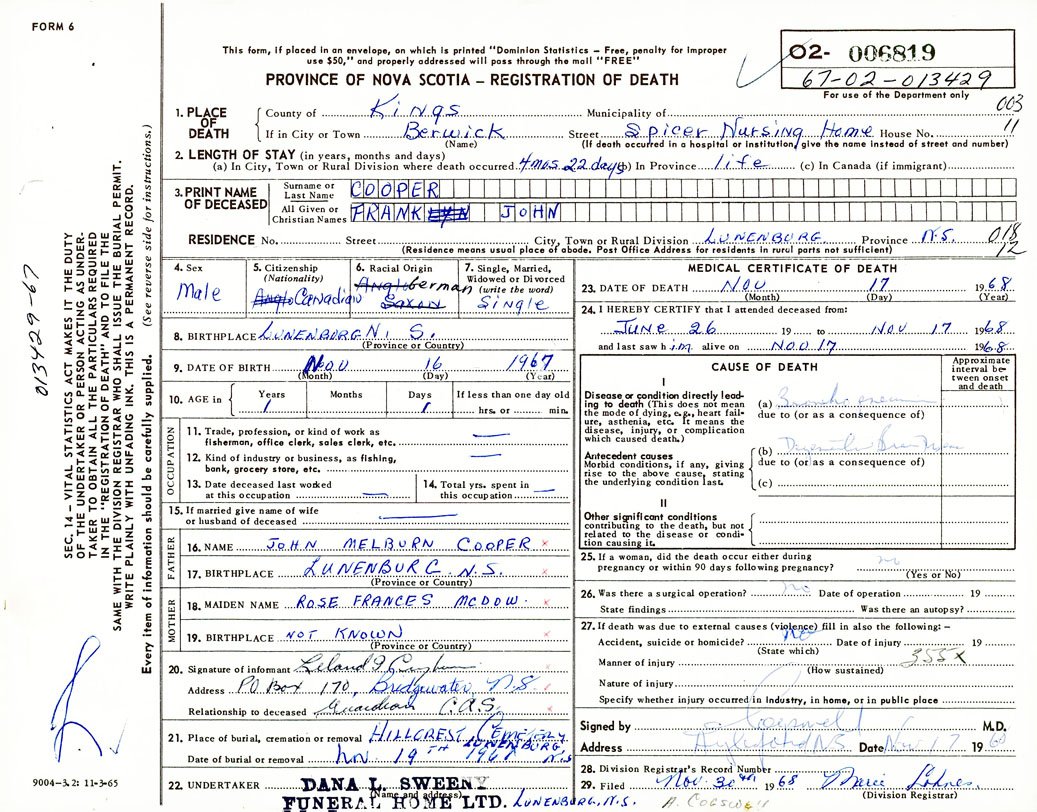 FORM 6
This form, if placed in an envelope, on which is printed "Dominion Statistics – Free, penalty for improper
use $50," and properly addressed will pass through the mail "FREE"
PROVINCE OF NOVA SCOTIA – REGISTRATION OF DEATH
02- 006819
67-02-013429
For use of the Department only
003
11
1. PLACE OF DEATH
County of Kings Municipality of
If in City or Town Berwick Street Spicer Nursing Home House No.
(Name) (If death occurred in a hospital or institution, give the name instead of street and number)
2. LENGTH OF STAY (in years, months and days)
(a) In City, Town or Rural Division where death occurred 4 mos 22 days (b) In Province life (c) In Canada (if immigrant)
3. PRINT NAME OF DECEASED
Surname or Last Name COOPER
All Given or Christian Names FRANK JOHN
RESIDENCE No. Street City, Town or Rural Division LUNENBURG Province N.S. 018
12
(Residence means usual place of abode. Post Office Address for residents in rural parts not sufficient)
4. Sex
Male
5. Citizenship
(Nationality)
Anglo Canadian
6. Racial Origin
Anglo German
Saxon
7. Single, Married,
Widowed or Divorced
(write the word)
Single
8. BIRTHPLACE LUNENBURG N. S.
(Province or Country)
9. DATE OF BIRTH Nov 16 1967
(Month) (Day) (Year)
10. AGE in
Years Months Days If less than one day old
1 1 hrs. or min.
OCCUPATION
11. Trade, profession or kind of work as
fisherman, office clerk, sales clerk, etc.
12. Kind of industry or business, as fishing,
bank, grocery store, etc.
13. Date deceased last worked
at this occupation
14. Total yrs. spent in
this occupation
15. If married give name of wife
or husband of deceased
FATHER
16. NAME JOHN MELBURN COOPER x
17. BIRTHPLACE LUNENBURG. N.S. x
(Province or Country)
MOTHER
18. MAIDEN NAME ROSE FRANCES MCDOW. x
19. BIRTHPLACE NOT KNOWN x
(Province or Country)
20. Signature of informant Leland
Address PO Box 170, Bridgewater N.S.
Relationship to deceased Guardian C.A.S.
21. Place of burial, cremation or removal HILLCREST CEMETERY
LUNENBURG,
Date of burial or removal 19TH 196 N.S
22. UNDERTAKER DANA L. SWEENY
(Name and address)
FUNERAL HOME LTD. LUNENBURG, N.S.
MEDICAL CERTIFICATE OF DEATH
23. DATE OF DEATH NOV 17 1968
(Month) (Day) (Year)
24. I HEREBY CERTIFY that I attended deceased from:
JUNE 26 19 to NOV 17 1968
and last saw him alive on NOV 17 1968
CAUSE OF DEATH
Approximate
interval be-
tween onset
and death
I
Disease or condition directly lead-
ing to death (This does not mean
the mode of dying, e.g., heart fail-
ure, asthenia, etc. It means the
disease, injury, or complication
which caused death.)
(a)
due to (or as a consequence of)
Antecedent causes
Morbid conditions, if any, giving
rise to the above cause, stating
the underlying condition last.
(b)
due to (or as a consequence of)
(c)
II
Other significant conditions
contributing to the death, but not
related to the disease or condi-
tion causing it.
25. If a woman, did the death occur either during
pregnancy or within 90 days following pregnancy? no
(Yes or No)
26. Was there a surgical operation? no Date of operation 19
State findings Was there an autopsy?
27. If death was due to external causes (violence) fill in also the following: –
Accident, suicide or homicide? Date of injury 19
(State which)
Manner of injury 355X
(How sustained)
Nature of injury
Specify whether injury occurred in industry, in home, or in public place
Signed by Cogswell M.D.
Address Aylesford N.S. Date Nov 17 1968
28. Division Registrar's Record Number
29. Filed Nov. 30th 1968
(Division Registrar)
A. COGSWELL
SEC. 14 – VITAL STATISTICS ACT MAKES IT THE DUTY
OF THE UNDERTAKER OR PERSON ACTING AS UNDER-
TAKER TO OBTAIN ALL THE PARTICULARS REQUIRED
IN THE "REGISTRATION OF DEATH" AND TO FILE THE
SAME WITH THE DIVISION REGISTRAR WHO SHALL ISSUE THE BURIAL PERMIT.
WRITE PLAINLY WITH UNFADING INK. THIS IS A PERMANENT RECORD.
Every item of information should be carefully supplied. (See reverse side for instructions.)
013429-67
9004-3.2: 11-3-65